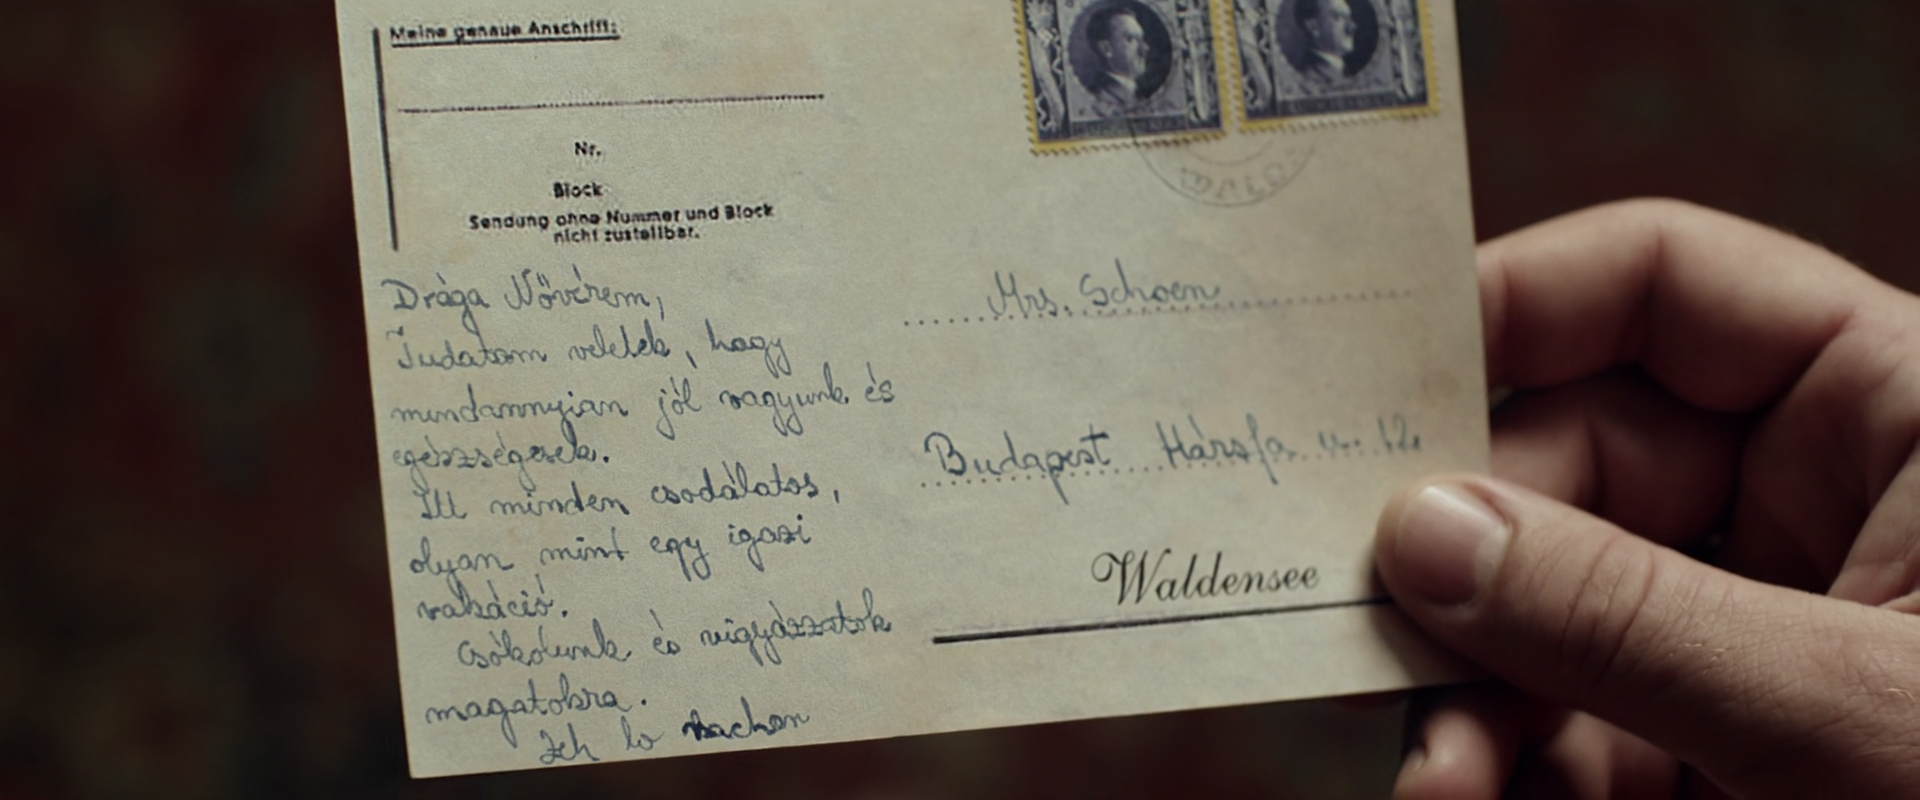 Meine genaue Anschrift:
Nr.
Block
Sendung ohne Nummer und Block
nicht zustellbar.
Drága Nővérem,
Tudatom veletek, hogy
mindannyian jól vagyunk és
egészségesek.
Itt minden csodálatos,
olyan mint egy igazi
vakáció.
Csókolunk és vigyázzatok
magatokra.
Zeh lo nachon
Mrs. Schoen
Budapest Hársfa u. 12.
Waldensee